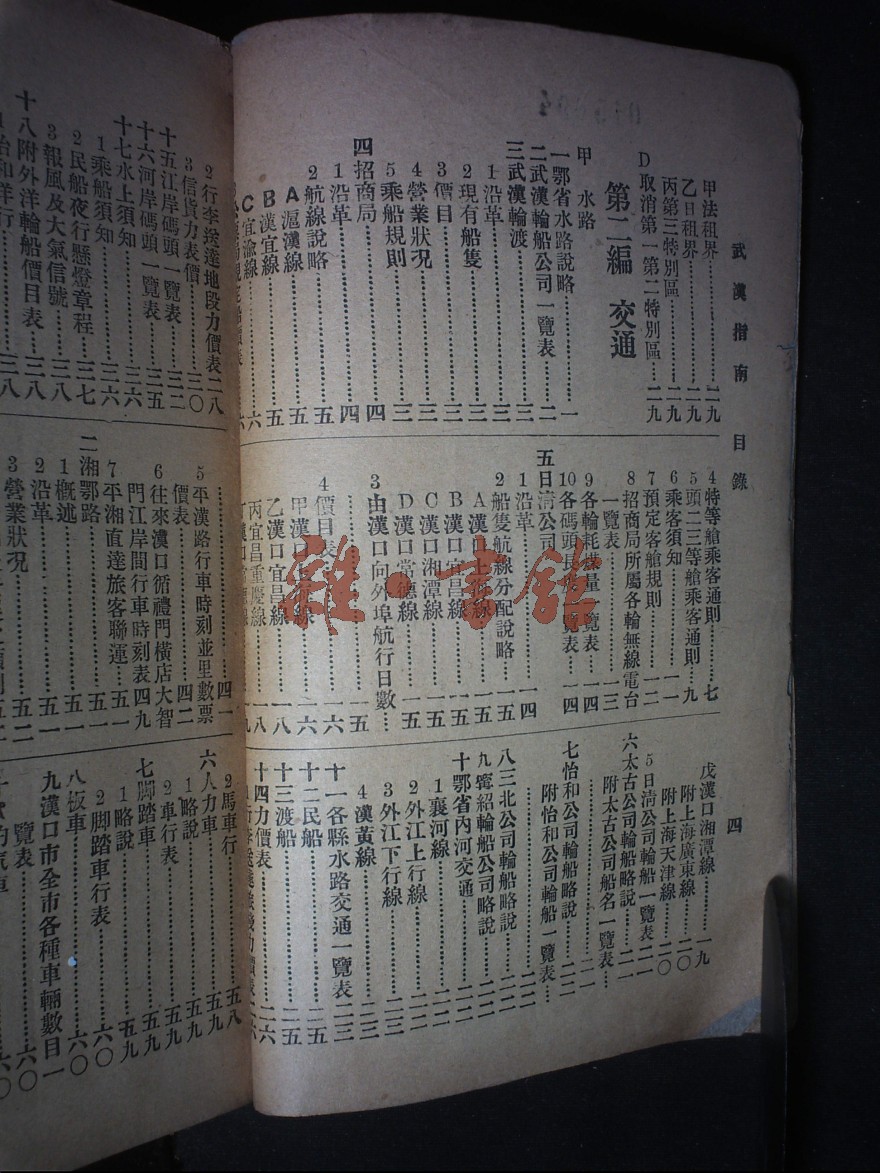 武漢指南 目錄
四
甲法租界……二九
乙日租界……二九
丙第三特別區……二九
D取消第一第二特別區…二九
第二編 交通
甲 水路
一鄂省水路說略……一
二武漢輪船公司一覽表…二
三武漢輪渡……三
1沿革……三
2現有船隻……三
3價目……三
4營業狀況……三
5乘船規則……三
四招商局……四
1沿革……四
2航線說略……五
A滬漢線……五
B漢宜線……五
C宜渝線……六
4特等艙乘客通則……七
5頭二三等艙乘客通則…九
6乘客須知……一一
7預定客艙規則……一二
8招商局所屬各輪無線電台
一覽表……一三
9各輪耗煤量一覽表……一四
10各碼頭長度一覽表…一四
五日清公司
1沿革……一四
2船隻航線分配說略…一五
A漢上海線……一五
B漢口宜昌線……一五
C漢口湘潭線……一五
D漢口常德線……一五
3由漢口向外埠航行日數
……一五
4價目表……一六
甲漢口上海線……一六
乙漢口宜昌線……一八
丙宜昌重慶線……一八
戊漢口湘潭線……一九
附上海廣東線……二〇
附上海天津線……二〇
5日清公司輪船一覽表…二一
六太古公司輪船略說……二一
附太古公司船名一覽表
七怡和公司輪船略說……二二
附怡和公司輪船一覽表
八三北公司輪船略說……二二
九寗紹輪船公司略說……二二
十鄂省內河交通……二二
1襄河線……二二
2外江上行線……二二
3外江下行線……二三
4漢黃線……二三
十一各縣水路交通一覽表…二三
十二民船……二五
十三渡船……二五
十四力價表……二六
2行李送達地段力價表…二八
3信貨力表價……三〇
十五江岸碼頭一覽表……三二
十六河岸碼頭一覽表……三五
十七水上須知……三六
1乘船須知……三六
2民船夜行懸燈章程……三七
3報風及大氣信號……三八
十八附外洋輪船價目表…三八
怡和洋行……三八
……四一
5平漢路行車時刻並里數票
價表……四二
6往來漢口循禮門橫店大智
門江岸間行車時刻表 四九
7平湘直達旅客聯運……五一
二湘鄂路……五一
1概述……五一
2沿革……五一
3營業狀況……五二
2馬車行……五八
六人力車……五九
1略說……五九
2車行表……五九
七脚踏車……五九
1略說……五九
2脚踏車行表……六〇
八板車……六〇
九漢口市全市各種車輛數目一
覽表……六〇
雜·書館